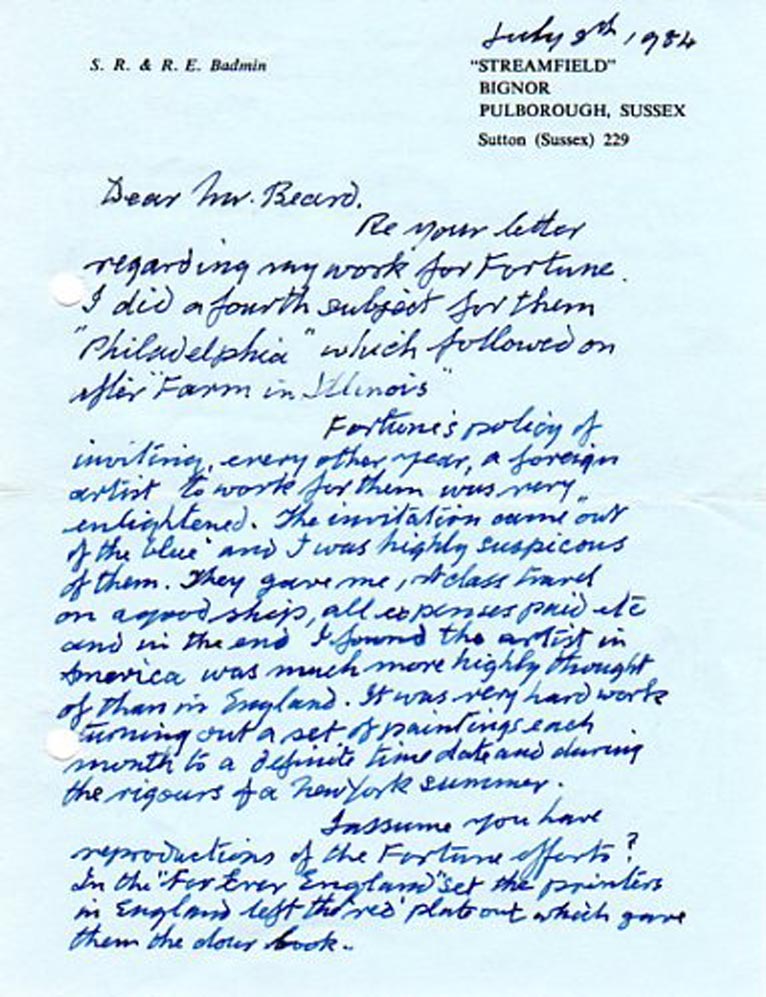 July 8th, 1984
S. R. & R. E. Badmin
"STREAMFIELD"
BIGNOR
PULBOROUGH, SUSSEX
Sutton (Sussex) 229
Dear Mr. Beard.
Re your letter
regarding my work for Fortune.
I did a fourth subject for them
"Philadelphia" which followed on
after "Farm in Illinois"
Fortune's policy of
inviting, every other year, a foreign
artist to work for them was very
enlightened. The invitation came "out
of the blue" and I was highly suspicous
of them. They gave me, 1st class travel
on a good ship, all expenses paid etc
and in the end I found the artist in
America was much more highly thought
of than in England. It was very hard work
turning out a set of paintings each
month to a definite time date and during
the rigours of a New York summer.
I assume you have
reproductions of the Fortune efforts?
In the "For Ever England" set the printers
in England left the 'red' plate out which gave
them the dour look..